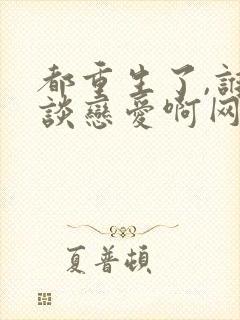 都重生了,誰
談戀愛啊网
夏普頓